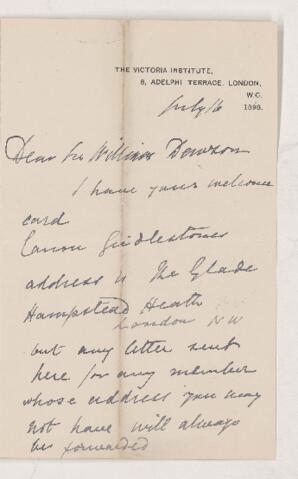 THE VICTORIA INSTITUTE,
8, ADELPHI TERRACE, LONDON,
W.C.
July 16 1898.
Dear Sir William Dawson
I have your welcome
card
Canon Girdlestones
address is The Glade
Hampstead Heath
London NW
but any letter sent
here for any member
whose address you may
not have will always
be forwarded